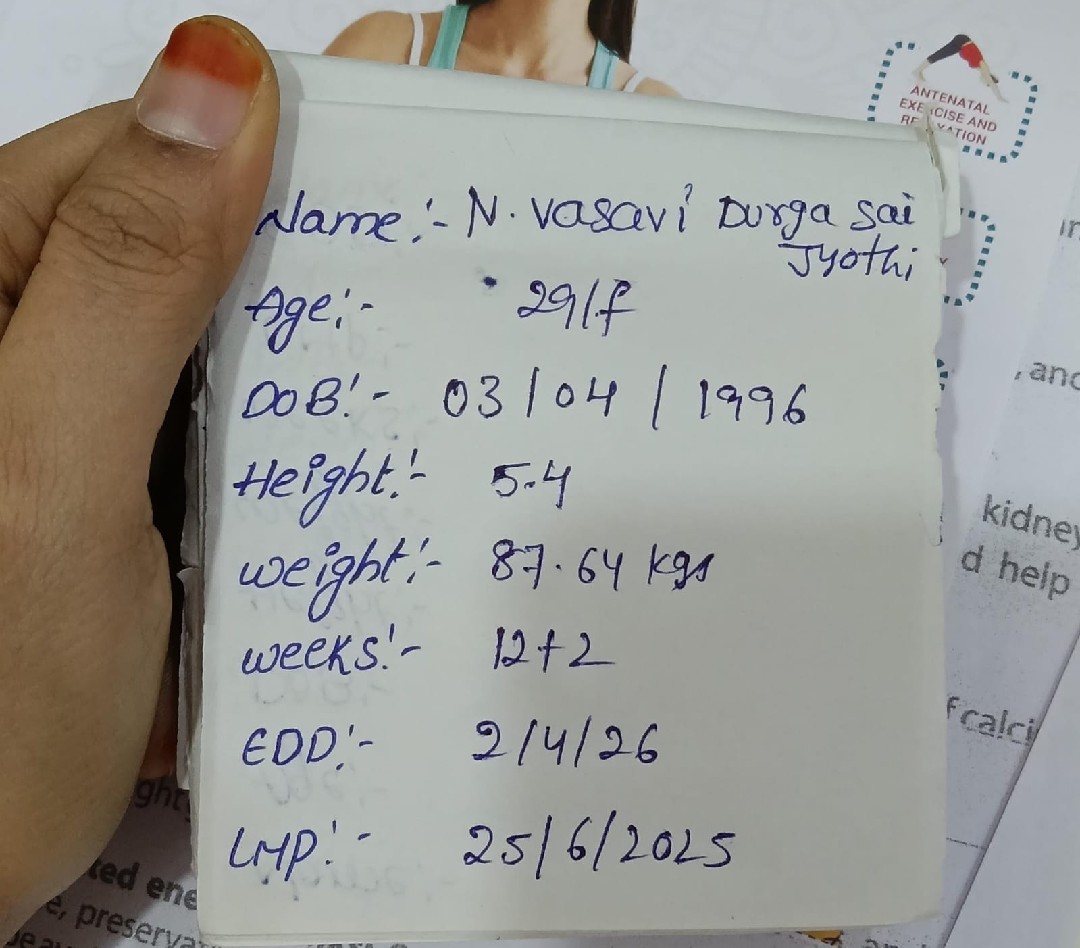 ANTENATAL
EXERCISE AND
Name:- N. Vasavi Durga Sai
Jyothi
Age:- 29/f
DOB:- 03/04/1996
Height:- 5.4
weight:- 87.64 kgs
weeks:- 12+2
EDD:- 2/4/26
LMP:- 25/6/2025
, and
kidney
d help
f calci
ght
ted ene
e, preserva